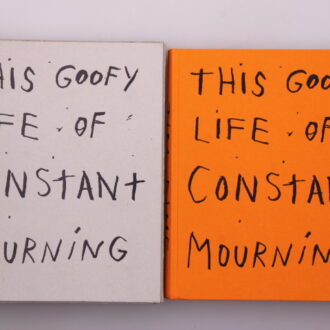 HIS GOOFY
FE OF
NSTANT
URNING
THIS GOO
LIFE OF
CONSTA
MOURNIN